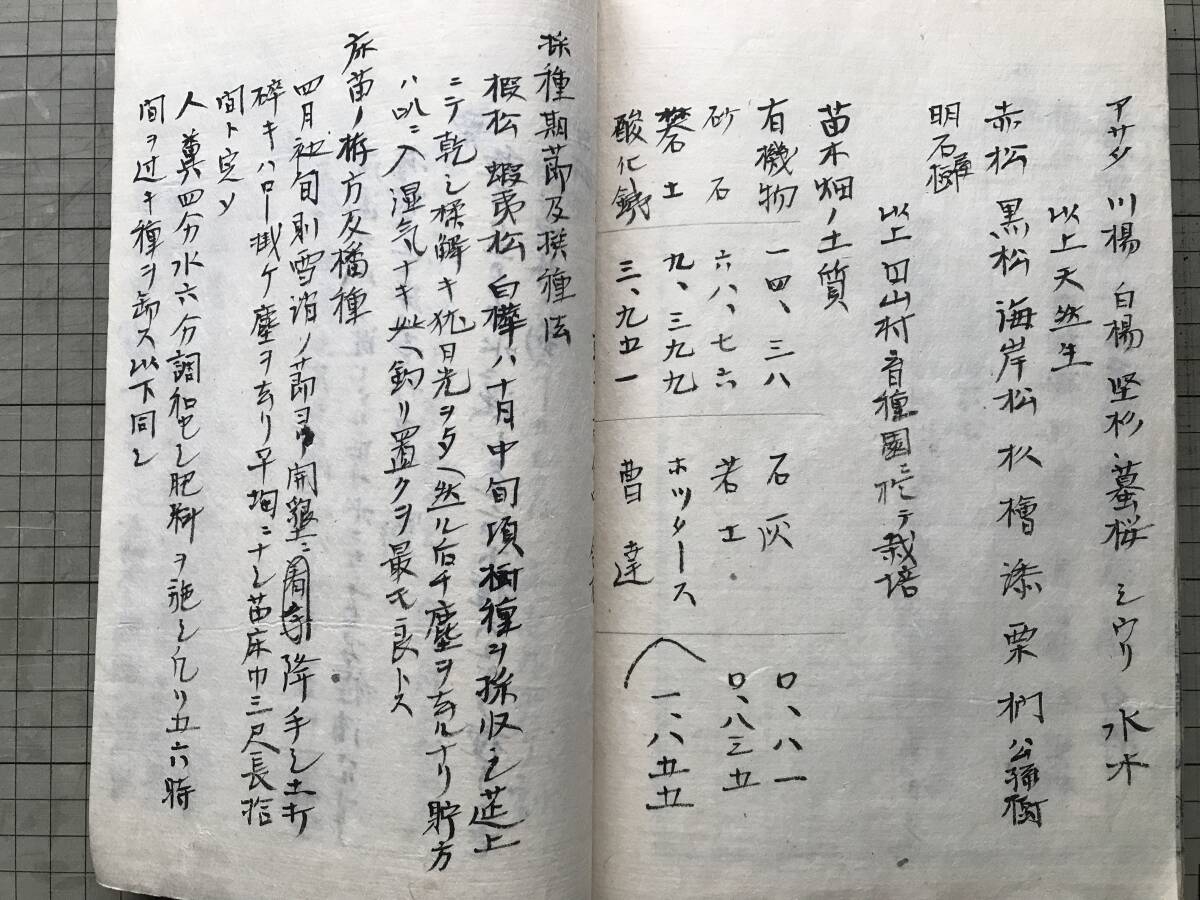 アサダ 川楊 白楊 堅杉 蟇桜 シウリ 水木
以上天然生
赤松 黒松 海岸松 杦 檜 漆 栗 椚 公孫樹
明石樺
以上円山村育種園ニ於テ栽培
苗木畑ノ土質
有機物 一四、三八 石灰 〇、八一
砂石 六八、七六 苦土 〇、八三五
礬土 九、三九九 ホツタース
酸化鉄 三、九五一 曹達 一、八五五
採種期節及撰種法
椴松 蝦夷松 白樺ハ十月中旬頃樹種ヲ採収シ莚上
ニテ乾シ揉解キ犹日光ヲ与ヘ然ル后チ塵ヲ去ルナリ貯方
ハ叺ニ入湿気ナキ処ヘ釣リ置クヲ最モ良トス
床苗ノ拵方及播種
四月 旬則雪消ノ節ヨリ開墾ニ 降手シ土打
砕キハロー掛ケ塵ヲ去リ平坦ニナシ苗床巾三尺長拾
間ト定ツ
人糞四分水六分調和シ肥料ヲ施シ凡リ五六時
間ヲ过キ種ヲ ス以下同シ